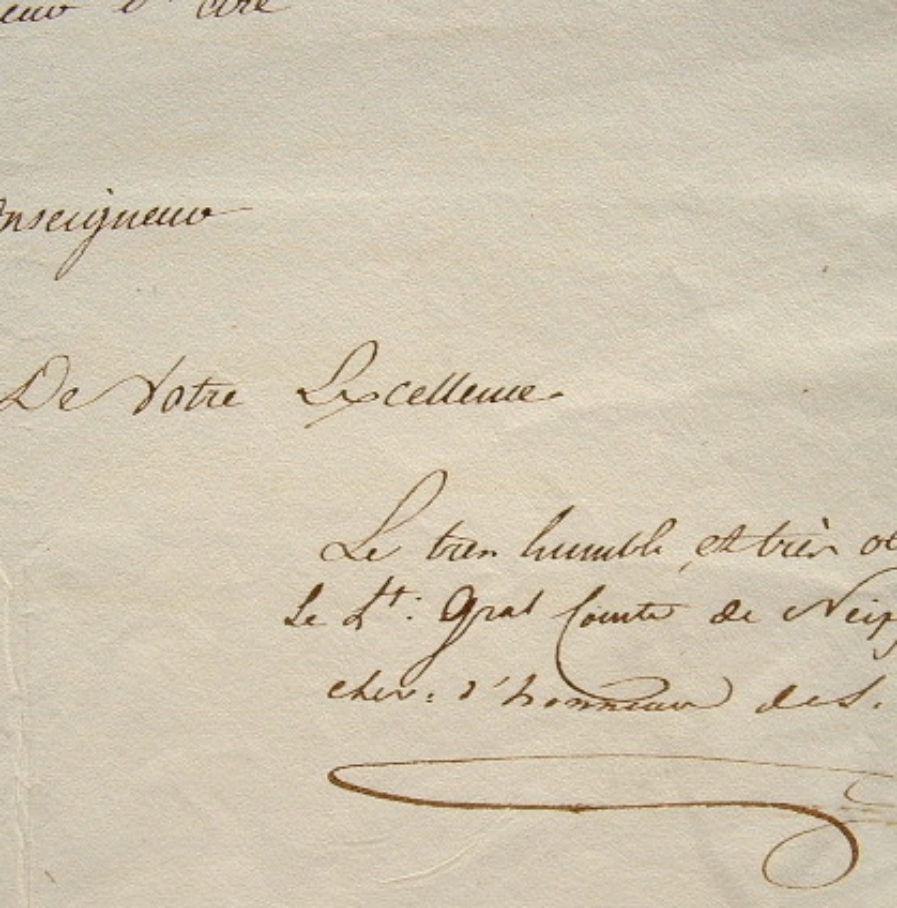 d'être
nseigneur
De Votre Excellence.
Le très humble et très ob
Le Lt: Gral Comte de Neip
chev: d'honneur de S.